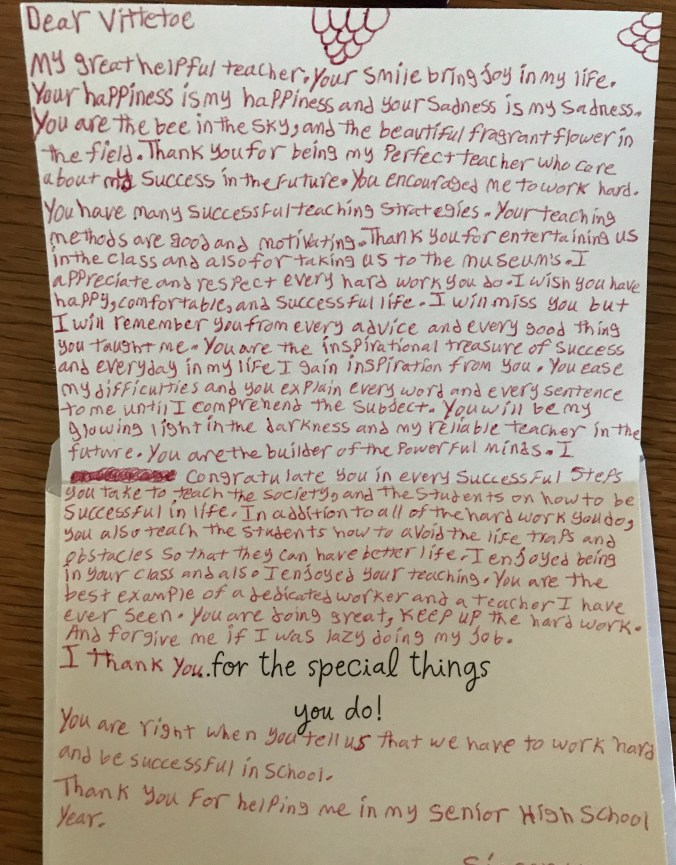 Dear Vittetoe
My great helpful teacher. Your smile bring joy in my life.
Your happiness is my happiness and your sadness is my sadness.
You are the bee in the sky, and the beautiful fragrant flower in
the field. Thank you for being my perfect teacher who care
about my success in the future. You encouraged me to work hard.
You have many successful teaching strategies. Your teaching
methods are good and motivating. Thank you for entertaining us
in the class and also for taking us to the museum's. I
appreciate and respect every hard work you do. I wish you have
happy, comfortable, and successful life. I will miss you but
I will remember you from every advice and every good thing
you taught me. You are the inspirational treasure of success
and everyday in my life I gain inspiration from you. You ease
my difficulties and you explain every word and every sentence
to me until I comprehend the subject. You will be my
glowing light in the darkness and my reliable teacher in the
future. You are the builder of the powerful minds. I
congratulate you in every successful steps
you take to teach the society, and the students on how to be
successful in life. In addition to all of the hard work you do,
you also teach the students how to avoid the life traps and
obstacles so that they can have better life. I enjoyed being
in your class and also I enjoyed your teaching. You are the
best example of a dedicated worker and a teacher I have
ever seen. You are doing great, keep up the hard work.
And forgive me if I was lazy doing my job.
I Thank you. for the special things
you do!
You are right when you tell us that we have to work hard
and be successful in school.
Thank you for helping me in my senior High School
year.